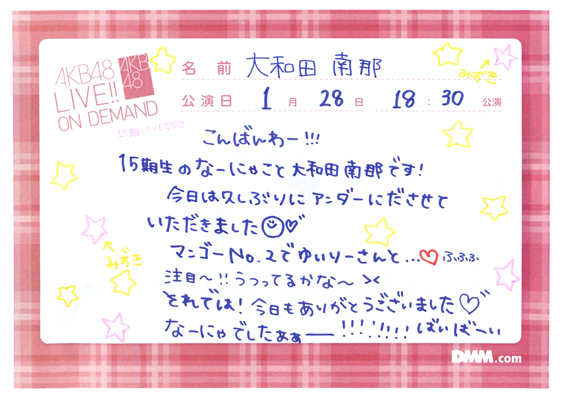 AKB48
LIVE!!
ON DEMAND
AKB
48
名 前 大和田 南那
みずき
公演日 1 月 28 日 18 : 30 公演
こんばんわー!!!
15期生のなーにゃこと大和田南那です!
今日は久しぶりにアンダーにださせて
いただきました
みずき
マンゴーNo.2でゆいりーさんと…♡ふふふ
注目〜!!うつってるかな〜 ><
それでは!今日もありがとうございました♡
なーにゃでしたぁぁー !!!!!!! ばいばーい
DMM.com